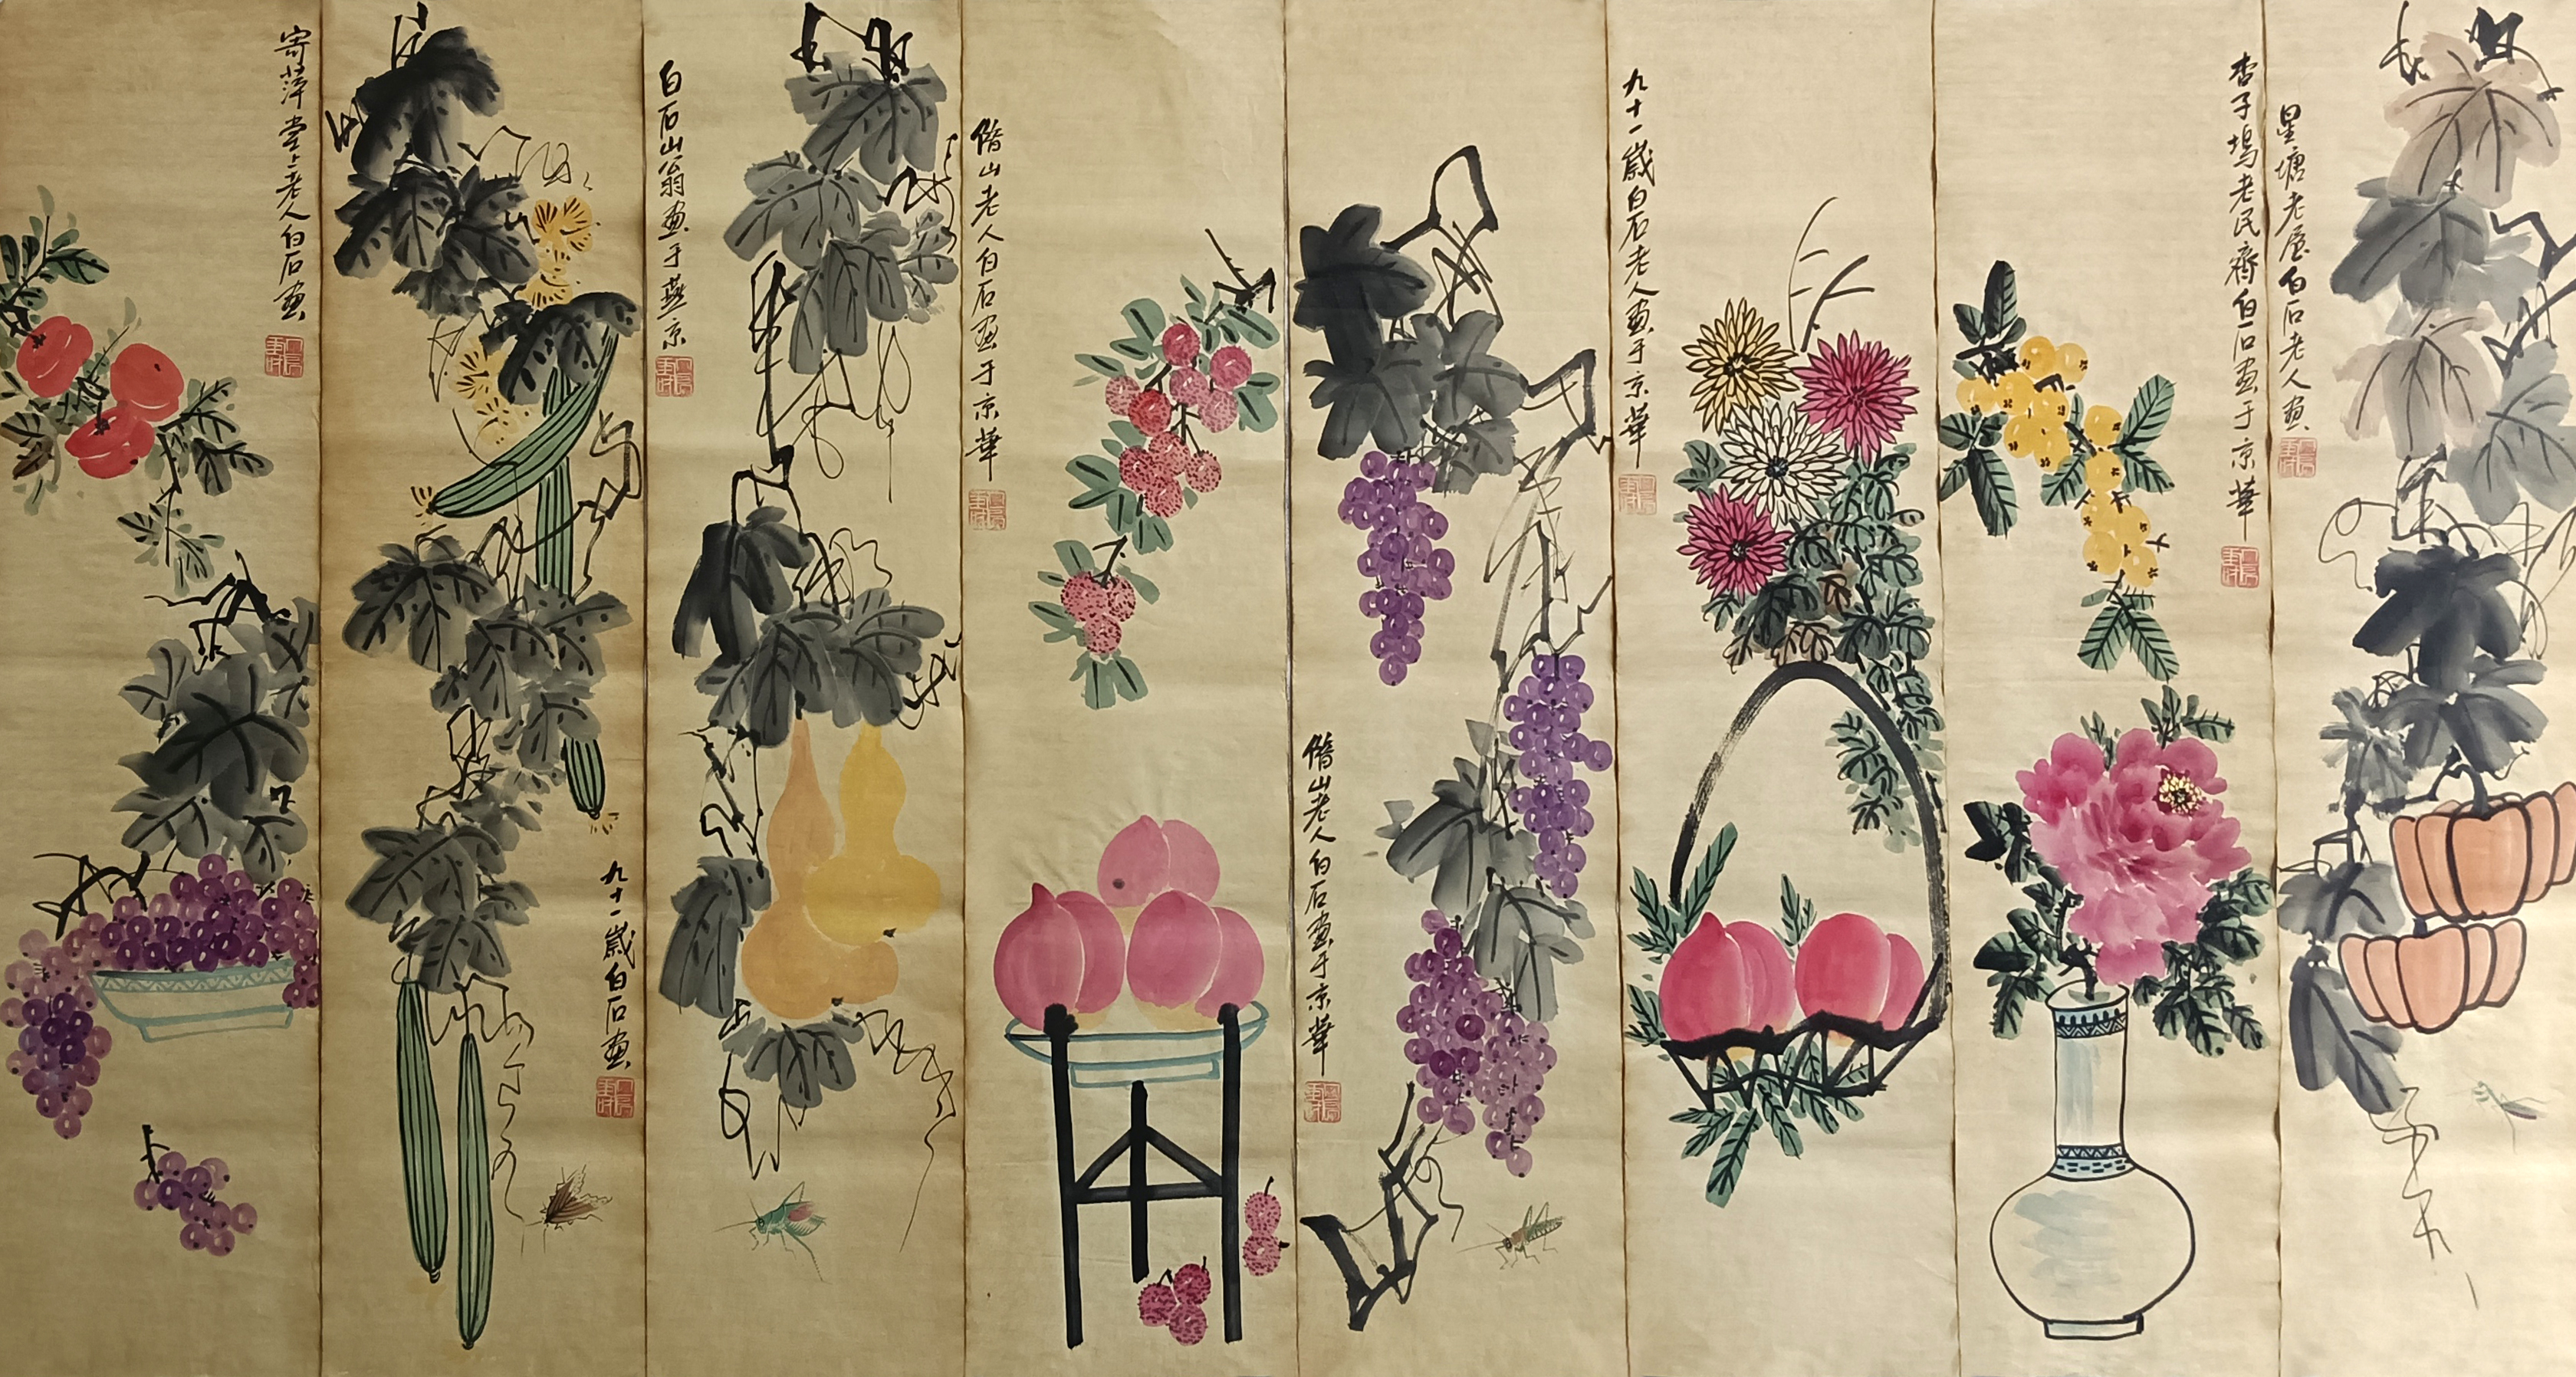 杏子塢老民齊白石画于京華
星塘老屋白石老人画
九十一歲白石老人画于京華
借山老人白石画于京華
借山老人白石画于京華
白石山翁画于燕京
九十一歲白石画
寄萍堂上老人白石画